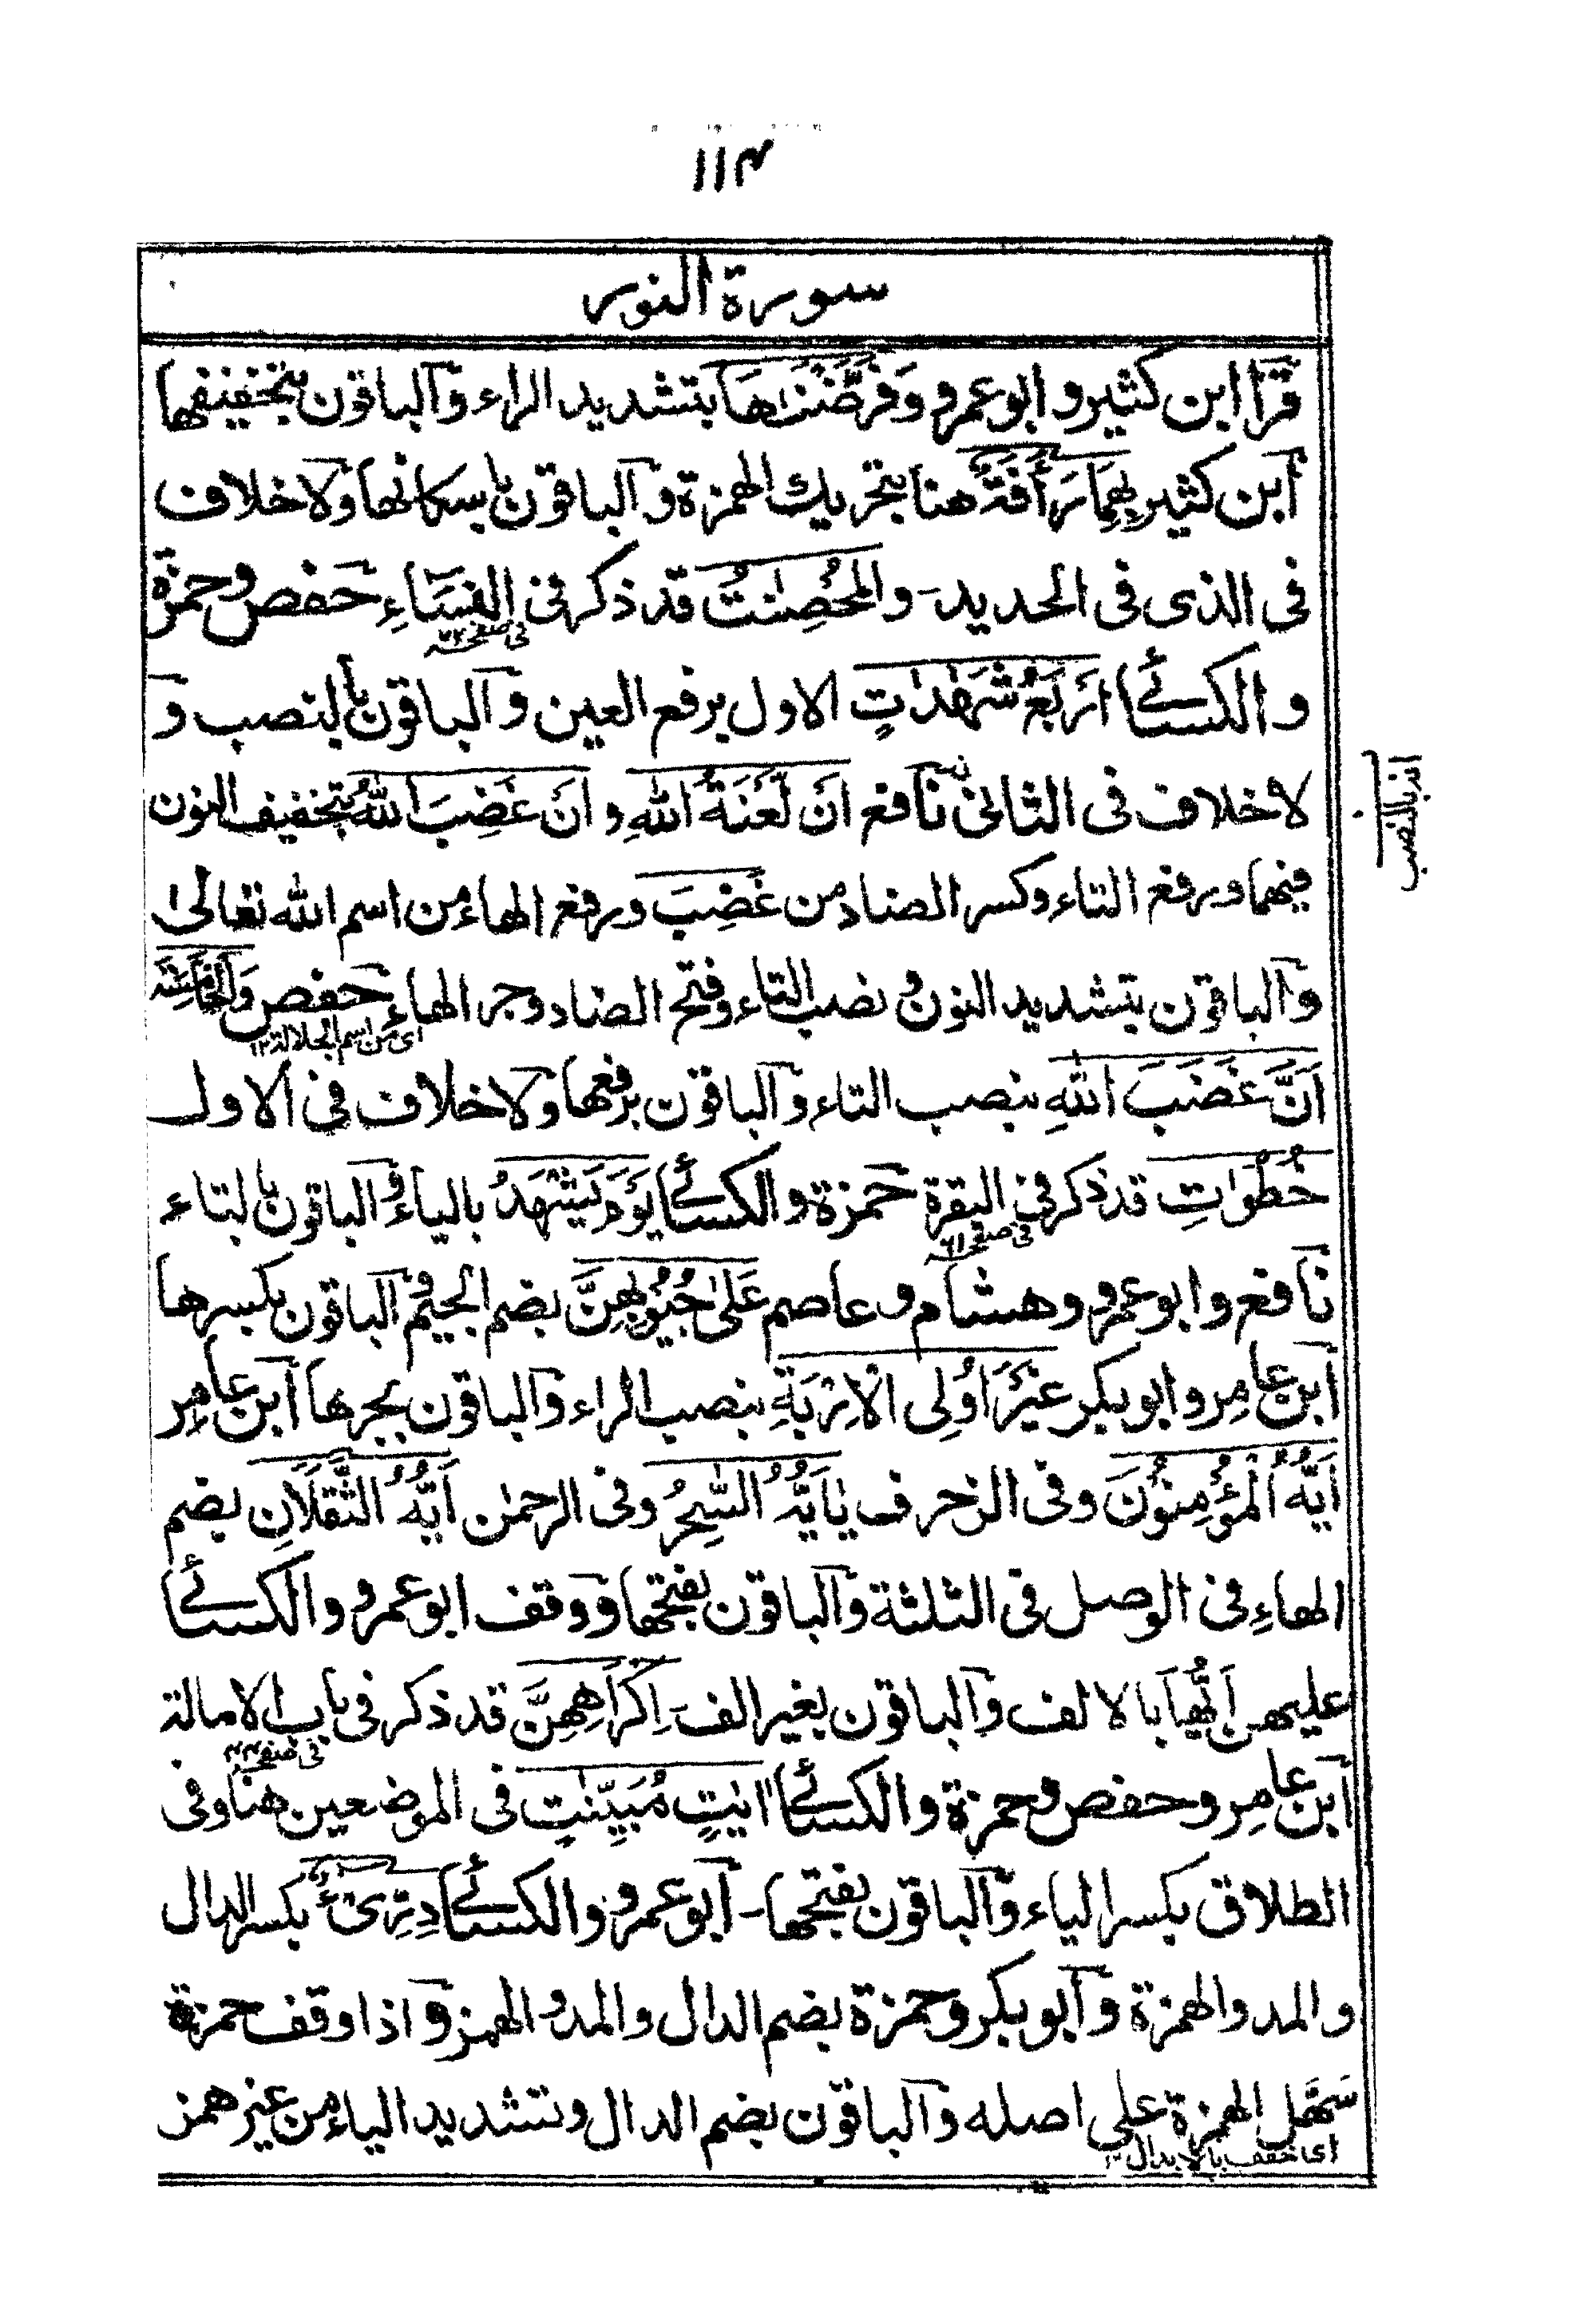 ۱۱۴
سورة النور
قرأ ابن كثير و ابو عمرو وَفَرَّضْنٰهَا بتشديد الراء والباقون بتخفيفها
ابن كثير بِهِمَا رَأَفَةٌ هنا بتحريك الهمزة والباقون باسكانها ولا خلاف
فى الذى فى الحديد - والمُحْصِنٰتُ قد ذكر فى النِّسَاءِ حفص وحمزة
فى صفحہ
والكسائے اَرْبَعُ شَهٰدٰتٍ الاول برفع العين والباقون بالنصب و
لا خلاف فى الثانى نافع اَنْ لَّعْنَةُ اللّٰهِ و اَنْ غَضِبَ اللّٰهُ بتخفيف النون
انه بالنصب
فيهما ورفع التاء وكسر الضاد من غَضِبَ ورفع الهاء من اسم الله تعالىٰ
والباقون بتشديد النون و نصب التاء وفتح الضاد وجر الهاء حفص وَالْخَامِسَةَ
اى من اسم الجلالة ١٢
اَنَّ غَضَبَ اللّٰهِ بنصب التاء والباقون برفعها ولا خلاف فى الاول
خُطُوٰتِ قد ذكر فى البقرة حمزة والكسائے يَوْمَ يَشْهَدُ بالياء والباقون بالتاء
فى صفحہ ٦١
نافع وابو عمرو وهشام وعاصم عَلٰى جُيُوْبِهِنَّ بضم الجيم والباقون بكسرها
ابن عامِر وابو بكر غَيْرَ اُولِى الْاِرْبَةِ بنصب الراء والباقون بجرها ابن عامِر
اَيُّهُ الْمُؤْمِنُوْنَ وفى الزخرف يٰاَيُّهُ السّٰحِرُ وفى الرحمٰن اَيُّهُ الثَّقَلَانِ بضم
الهاءِ فى الوصل فى الثلثة والباقون بفتحها ووقف ابو عمرو والكسائے
عليهن اَيُّهَا بالالف والباقون بغير الف - اِكْرَاهِهِنَّ قد ذكر فى باب الامالة
فى صفحہ
ابن عامِر وحفص وحمزة والكسائے اٰيٰتٍ مُبَيِّنٰتٍ فى الموضعين هنا وفى
الطلاق بكسر الياء والباقون بفتحها - ابو عمرو والكسائے دِرِّىْءٌ بكسر الدال
والمد والهمزة وابو بكر وحمزة بضم الدال والمد و الهمز و اذا وقف حمزة
سَهَّل الهمزة على اصله والباقون بضم الدال وتشديد الياء من غير همز
اى خفف بالابدال